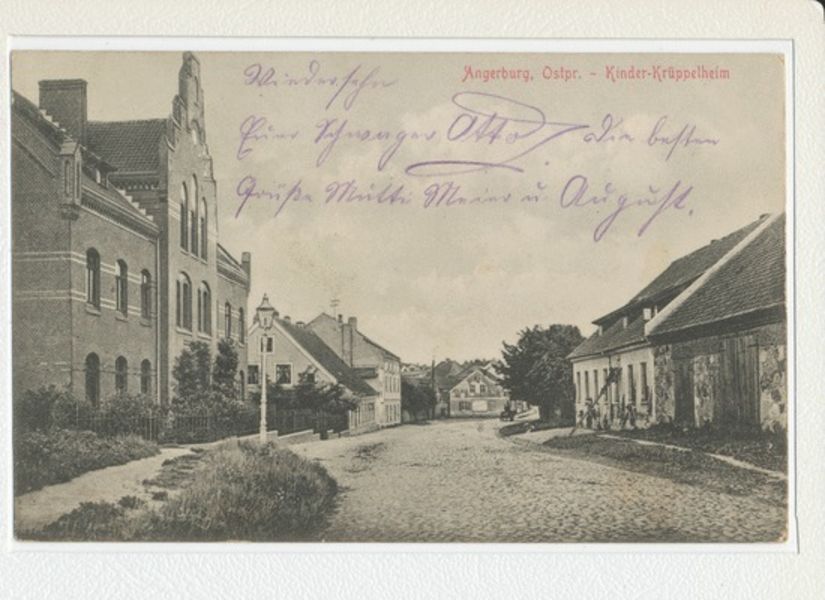 Angerburg, Ostpr. - Kinder-Krüppelheim
Wiedersehn
Euer Schwager Otto die besten
Grüße Mutti Meier u August.